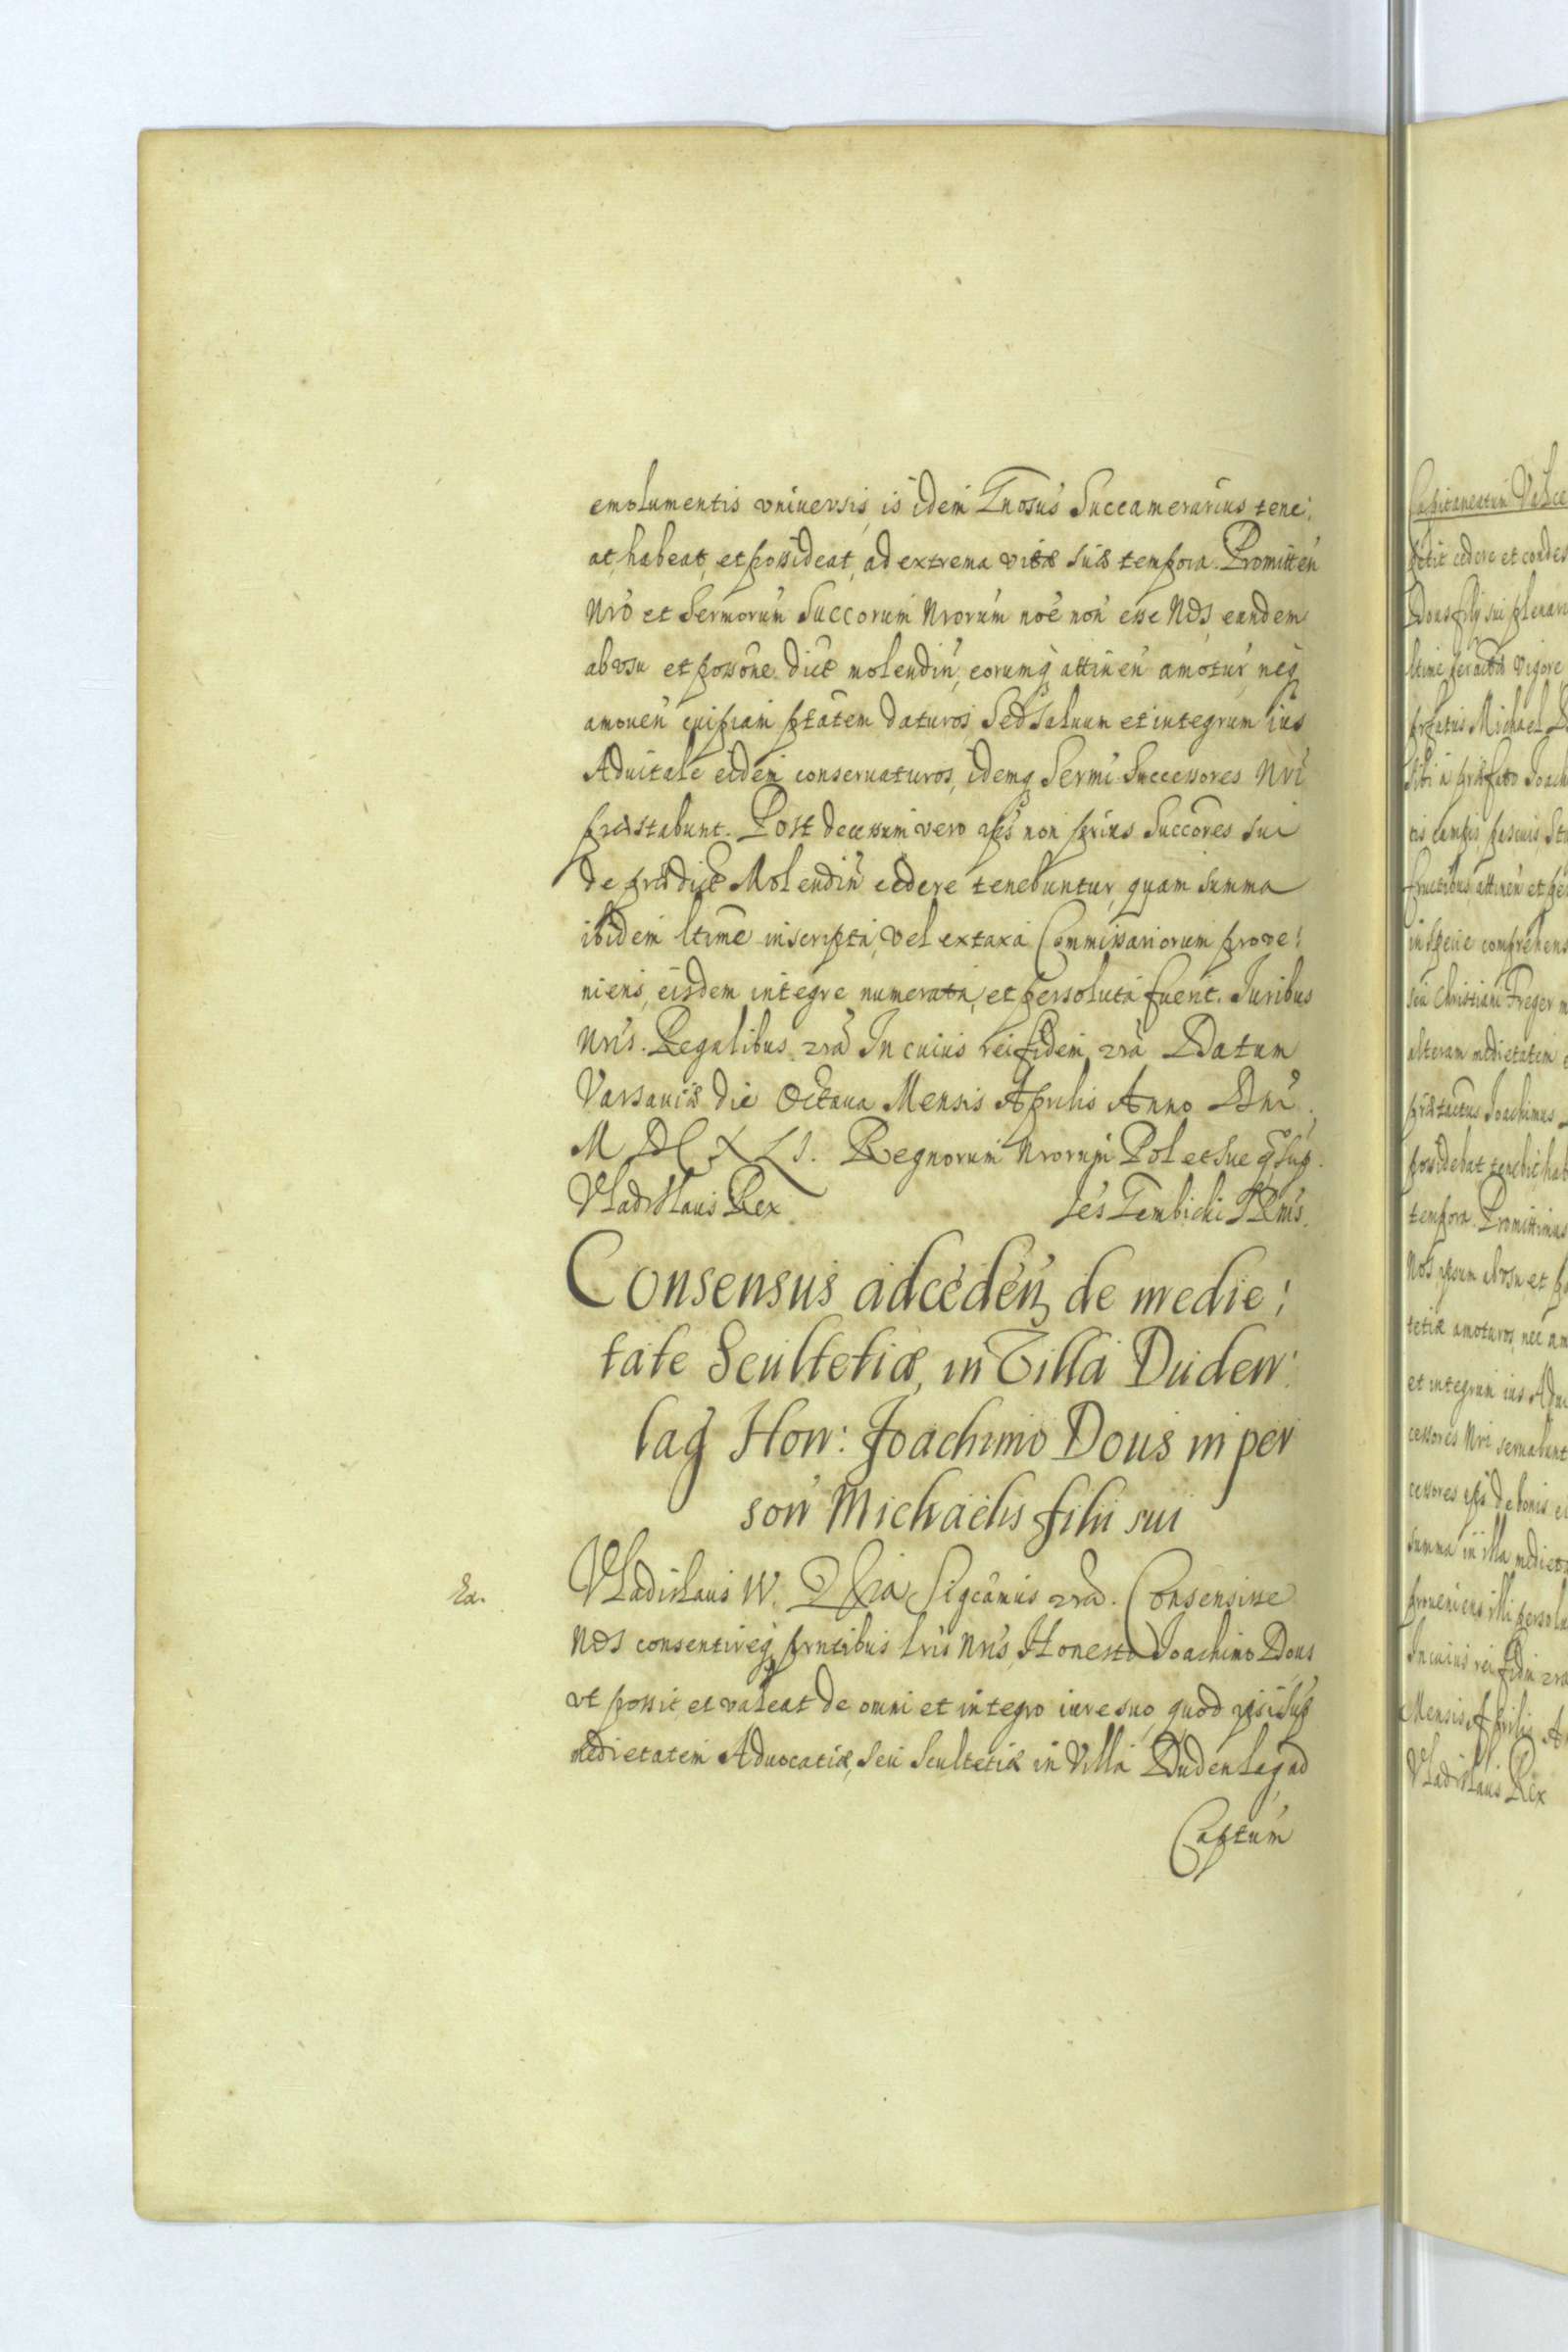 emolumentis vniuersis, is idem Gnosus Succamerarius tene:
at, habeat, et possideat, ad extrema vitæ suæ tempora. Promitteñ
Nro et Sermorum Succorum Nrorum noe non esse Nos, eundem
ab vsu et possone dict molendin, eorumq attinen amotur, neq
amouen cuipiam ptatem daturos Sed saluum et integrum ius
Aduitale eidem conseruaturos, idemq Sermi Successores Nri
præstabunt. Post decessum vero ips non prius Succores sui
de prædict Molendin cedere tenebuntur, quam summa
ibidem ltime inscripta, vel ex taxa Commissariorum proue:
niens, eisdem integre numerata, et persoluta fuerit. Iuribus
Nris Regalibus In cuius rei fidem Datum
Varsauiæ die Octaua Mensis Aprilis Anno Dni
M DC XLI. Regnorum Nrorum Pol et Sue q sup
Vladislaus Rex
Consensus ad ceden de medie:
tate Scultetiæ, in Villa Duden
lag Hon: Joachimo Dous in per
son Michaelis filij sui
Ex.
Vladislaus IV. D Gra Sigcamus Consensisse
Nos consentireq prntibus lris Nris, Honesto Joachimo Dous
vt possit, et valeat de omni et integro iure suo, quod ipsi sup
medietatem Aduocatiæ, seu Scultetiæ in Villa Dudenlag ad
Captum
Capitaneatum
potit cedere et condes
Dous filij sui plenari
ltime peractæ vigore
pfatus Michael D
sibi a præfato Joach
tis campis, pascuis,
fructibus, attinen et
in specie comprehens
seu Christiani Freger
alteram medietatem
prætactus Joachimus
possidebat, tenebit, hab
tempora. Promittimus
Nos ipsum ab vsu et po
tetiæ amoturos, nec am
et integrum ius Adui
cessores Nri seruabunt
cessores ips de bonis
summa in illa mediet
proueniens illi persolu
In cuius rei fidem
Mensis Aprilis An
Vladislaus Rex